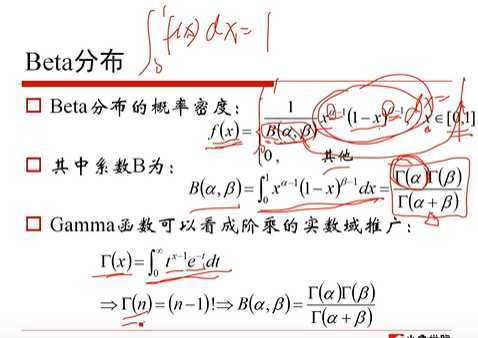 Beta分布 ∫₀¹ f(x) dx = 1
□ Beta分布的概率密度:
f(x) = { 1/B(α,β) x^(α-1) (1-x)^(β-1), x∈[0,1]
0, 其他
□ 其中系数B为:
B(α,β) = ∫₀¹ x^(α-1) (1-x)^(β-1) dx = Γ(α)Γ(β)/Γ(α+β)
□ Gamma函数可以看成阶乘的实数域推广:
Γ(x) = ∫₀^∞ t^(x-1) e^(-t) dt
⇒ Γ(n) = (n-1)! ⇒ B(α,β) = Γ(α)Γ(β)/Γ(α+β)